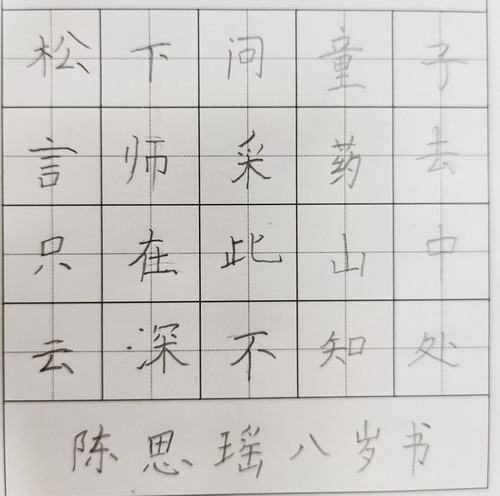 松下问童子
言师采药去
只在此山中
云深不知处
陈思瑶八岁书